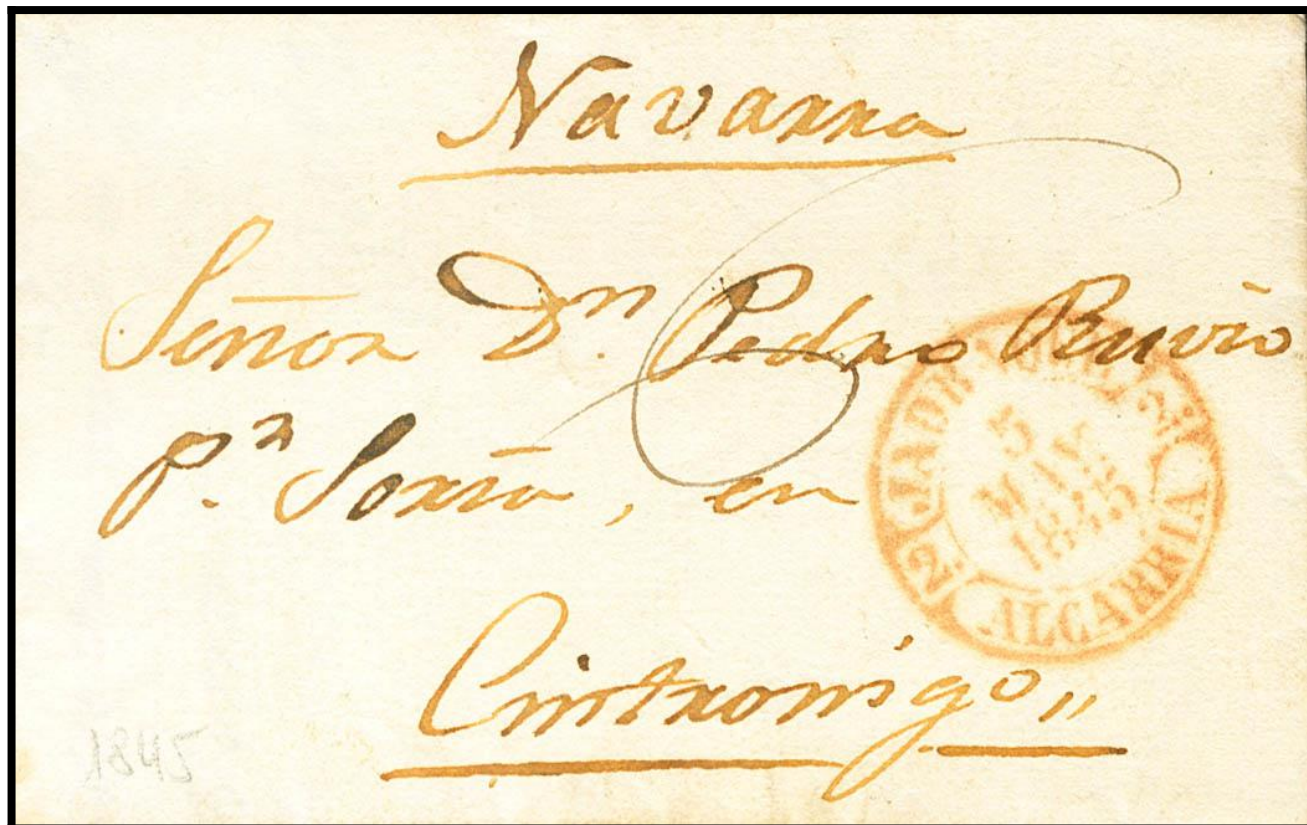 Navarra
Señor Dn. Pedro Ruvio
Pr. Soria, en
Cintronigo "
5
MAY
1845
ALCARRIA
2
1845